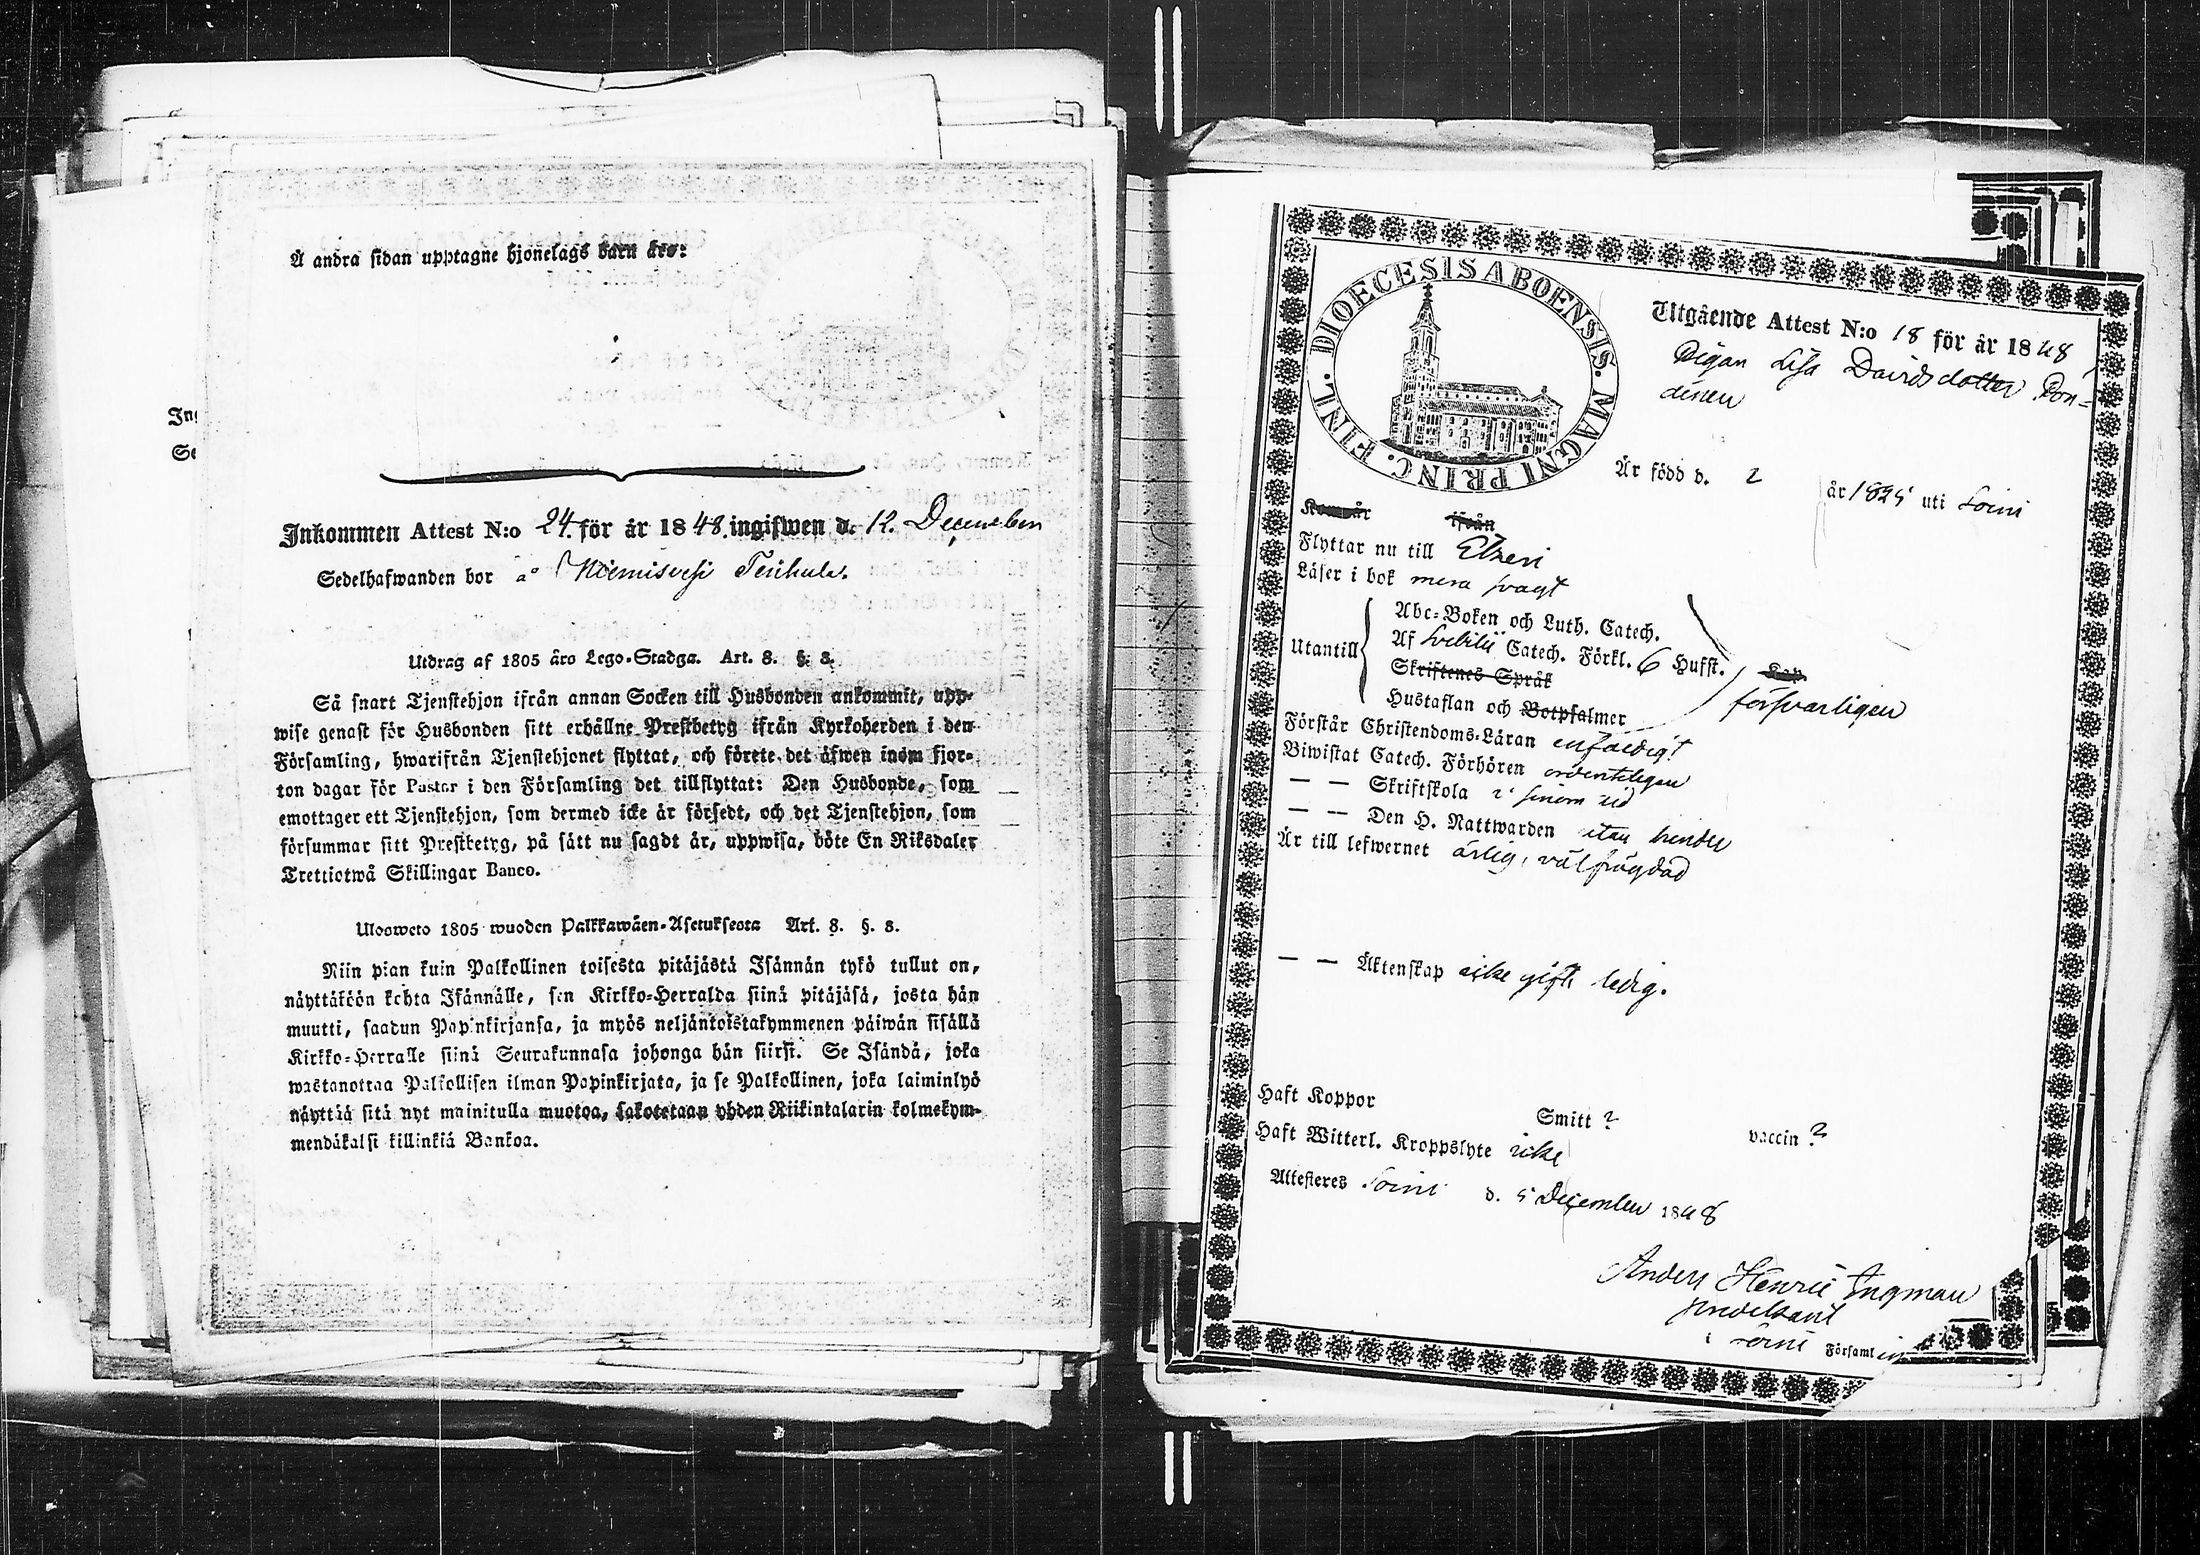 Å andra sidan upptagne hjonelags barn äro:
Inkommen Attest N:o 24. för år 1848. ingifwen d. 12. December
Sedelhafwanden bor å Niemisvesi Terhula.
Utdrag af 1805 års Lego-Stadga. Art. 8. §. 8.
Så snart Tjenstehjon ifrån annan Socken till Husbonden ankommit, upp-
wise genast för Husbonden sitt erhållne Prestbetyg ifrån Kyrkoherden i den
Församling, hwarifrån Tjenstehjonet flyttat, och förete det äfwen inom fjor-
ton dagar för Pastor i den Församling det tillflyttat: Den Husbonde, som
emottager ett Tjenstehjon, som dermed icke är försedt, och det Tjenstehjon, som
försummar sitt Prestbetyg, på sätt nu sagdt är, uppwisa, böte En Riksdaler
Trettiotwå Skillingar Banco.
Ulosweto 1805 wuoden Palkkawäen-Asetuksesta Art. 8. §. 8.
Niin pian kuin Palkollinen toisesta pitäjästä Isännän tykö tullut on,
näyttäköön kohta Isännälle, sen Kirkko-Herralda siinä pitäjäsä, josta hän
muutti, saadun Papinkirjansa, ja myös neljäntoistakymmenen päiwän sisällä
Kirkko-Herralle siinä Seurakunnasa johonga hän siirsi. Se Isändä, joka
wastanottaa Palkollisen ilman Papinkirjata, ja se Palkollinen, joka laiminlyö
näyttää sitä nyt mainitulla muotoa, sakotetaan yhden Riikintalarin kolmekym-
mendäkaksi killinkiä Bankoa.
FINL. DIOECESIS ABOENSIS. MAGNI PRINC.
Utgående Attest N:o 18 för år 1848
Pigan Lisa Davidsdotter Pön=
dinen
Är född d. 2 år 1825 uti Soini
Kom år ifrån
Flyttar nu till Etseri
Läser i bok mera svagt
Utantill
Abc-Boken och Luth. Catech.
Af Svebilii Catech. Förkl. 6 Hufst. Kap.
Skriftenes Språk
Hustaflan och Botpsalmer
försvarligen
Förstår Christendoms-Läran enfaldigt
Biwistat Catech. Förhören ordenteligen
— — Skriftskola i sinom tid
— — Den H. Nattwarden utan hinder
Är till lefwernet ärlig, välfrägdad
— — Äktenskap icke gift ledig.
Haft Koppor Smitt ? vaccin ?
Haft Witterl. Kroppslyte icke
Attesteres Soini d. 5 December 1848
Anders Henric Ingman
predikant
i Soini Församling